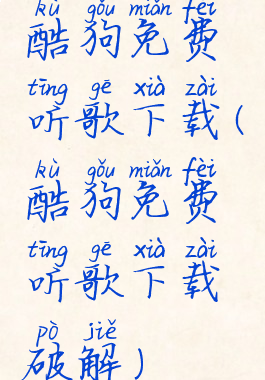 kù gǒu miǎn fèi
酷狗免费
tīng gē xià zài
听歌下载(
kù gǒu miǎn fèi
酷狗免费
tīng gē xià zài
听歌下载
pò jiě
破解)